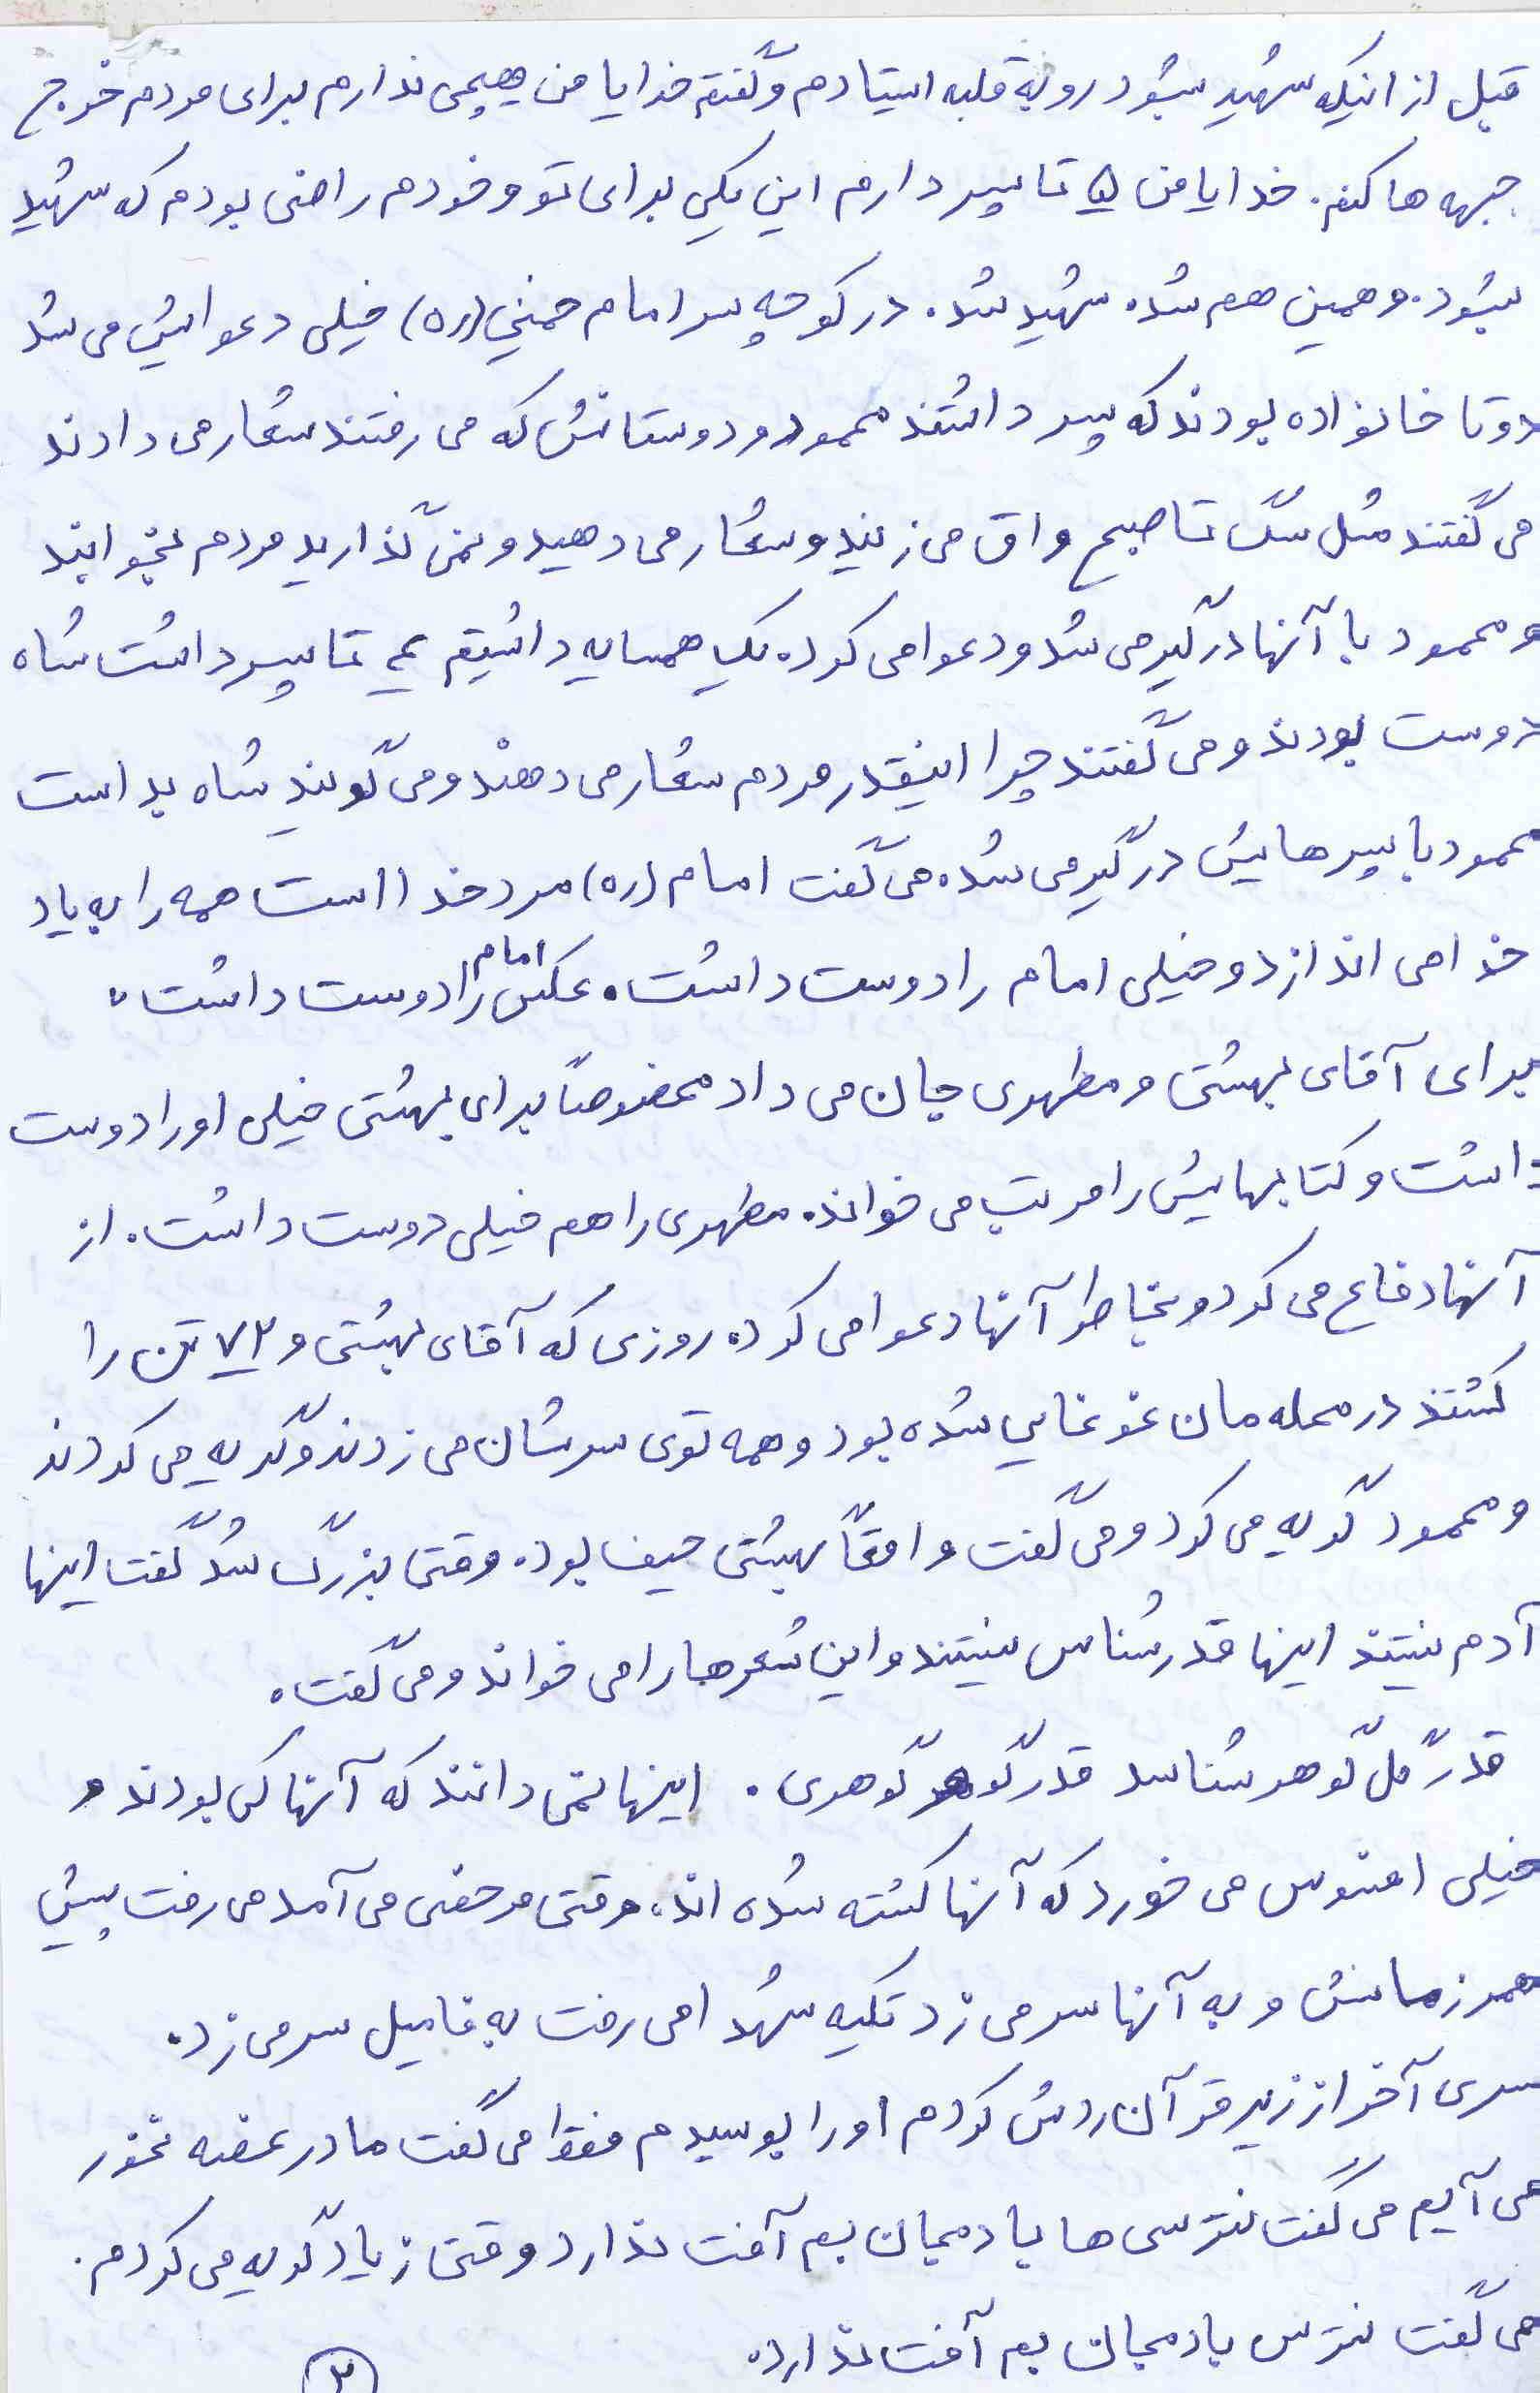 قبل از اینکه شهید بشود رو به قبله ایستادم و گفتم خدایا من هیچی ندارم برای مردم خرج
جبهه ها کنم. خدایا من ۵ تا پسر دارم این یکی برای تو و خودم راضی بودم که شهید
بشود. و همین هم شد. شهید شد. در کوچه سر امام خمینی (ره) خیلی دعوایش می شد
دوتا خانواده بودند که پسر داشتند محمود و دوستانش که می رفتند شعار می دادند
می گفتند مثل سگ تا صبح واق می زنید و شعار می دهید و نمی گذارید مردم بخوابند
و محمود با آنها درگیر می شد و دعوا می کرد. یک همسایه داشتیم ۴ تا پسر داشت شاه
دوست بودند و می گفتند چرا اینقدر مردم شعار می دهند و می گویند شاه بد است
محمود با پسرهایش درگیر می شد. می گفت امام (ره) مرد خدا است همه را به یاد
خدا می اندازد و خیلی امام را دوست داشت. عکس امام را دوست داشت.
برای آقای بهشتی و مطهری جان می داد مخصوصاً برای بهشتی خیلی او را دوست
داشت و کتابهایش را مرتب می خواند. مطهری را هم خیلی دوست داشت. از
آنها دفاع می کرد و بخاطر آنها دعوا می کرد. روزی که آقای بهشتی و ۷۲ تن را
کشتند در محله مان غوغایی شده بود و همه توی سرشان می زدند و گریه می کردند
و محمود گریه می کرد و می گفت واقعاً بهشتی حیف بود. وقتی بزرگ شد گفت اینها
آدم نیستند اینها قدرشناس نیستند و این شعرها را می خواند و می گفت.
قدر گل گوهر شناسد قدر گوهر گوهری. اینها نمی دانند که آنها کی بودند و
خیلی افسوس می خورد که آنها کشته شده اند. وقتی مرخصی می آمد می رفت پیش
همرزمانش و به آنها سر می زد تکیه شهدا می رفت به فامیل سر می زد.
سری آخر از زیر قرآن ردش کردم او را بوسیدم فقط می گفت مادر غصه نخور
می آیم می گفت نترسی ها بادمجان بم آفت ندارد وقتی زیاد گریه می کردم.
می گفت نترس بادمجان بم آفت ندارد.
۲